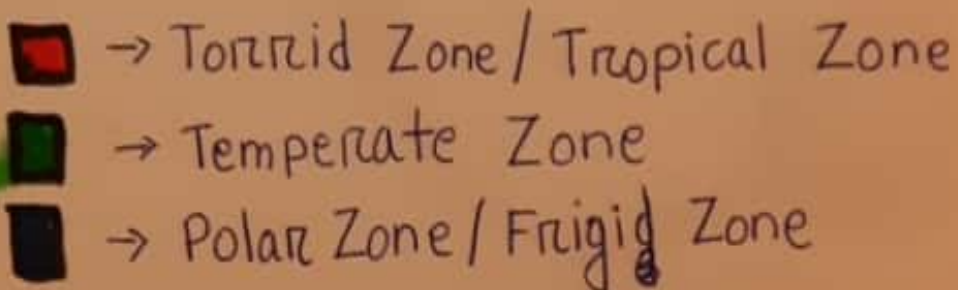 → Torrid Zone / Tropical Zone
→ Temperate Zone
→ Polar Zone / Frigid Zone